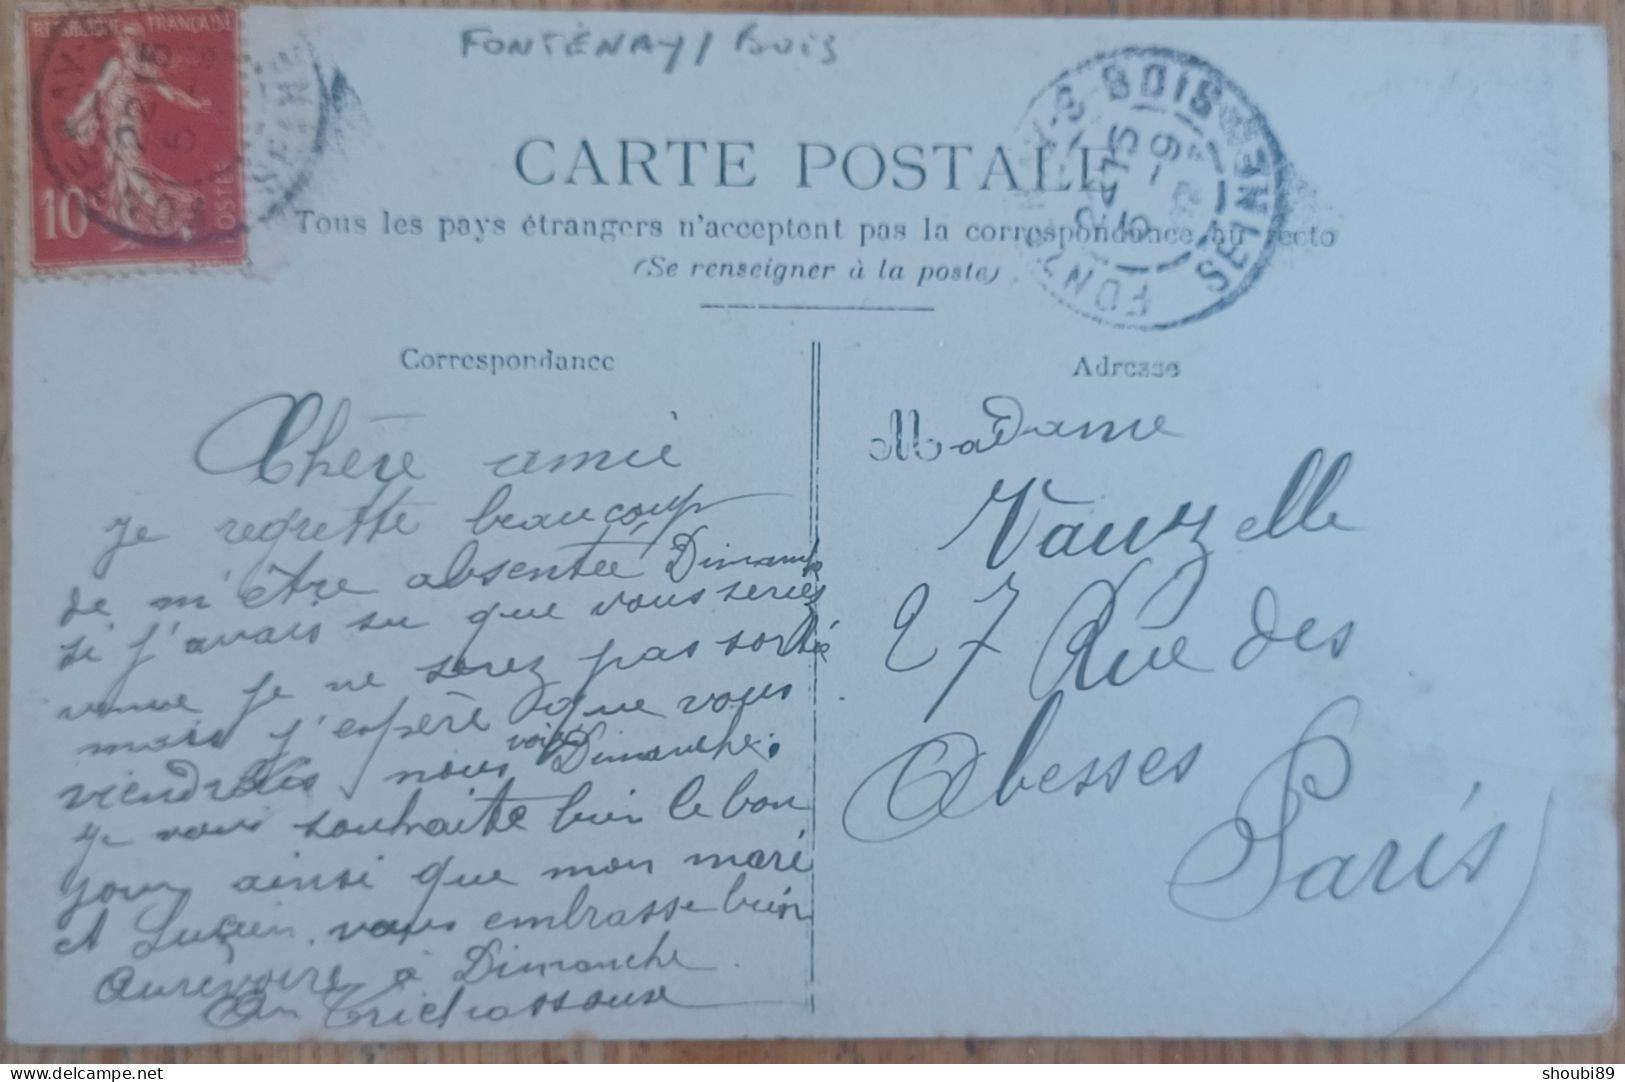 FONTENAY / BOIS
RÉPUBLIQUE FRANÇAISE
10c
POSTE
S-BOIS
SEINE
CARTE POSTALE
Tous les pays étrangers n'acceptent pas la correspondance au recto
(Se renseigner à la poste)
Correspondance
Chère amie
je regrette beaucoup
de m'être absentée Dimanche
si j'avais su que vous seriez
venue je ne serez pas sortie
mais j'espère que vous
viendrez nous voir Dimanche.
je vous souhaite bien le bon
jour ainsi que mon mari
et Lucien vous embrasse bien
Aurevoire à Dimanche.
Adresse
Madame
Vauzelle
27 Rue des
Abesses
Paris
shoubi89